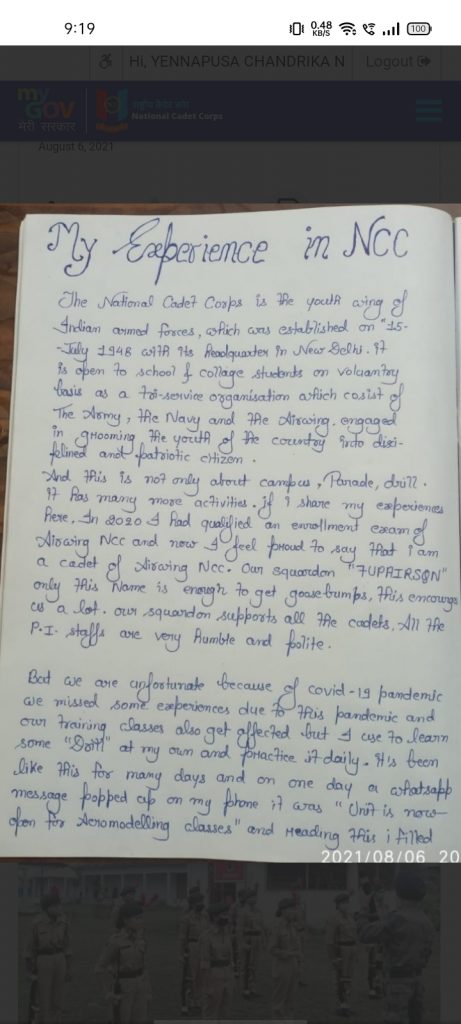 9:19
0.48
KB/S
100
Hi, YENNAPUSA CHANDRIKA N
Logout
my
GOV
मेरी सरकार
राष्ट्रीय कैडेट कोर
National Cadet Corps
August 6, 2021
My Experience in NCC
The National Cadet Corps is the youth wing of
Indian armed forces, which was established on "15-
-July 1948 with its headquater in New Delhi. it
is open to school & collage students on voluantry
basis as a tri-service organisation which cosist of
The Army, the Navy and the Airwing. engaged
in grooming the youth of the country into disci-
plined and patriotic citizen.
And this is not only about campus, Parade, drill.
it has many more activities. if i share my experiences
here, In 2020 I had qualified an enrollment exam of
Airwing NCC and now I feel proud to say that i am
a cadet of Airwing NCC. Our squardon "7UPAIRSQN"
only this Name is enough to get goosebumps, this encourags
us a lot. our squardon supports all the cadets. All the
P.I. staffs are very humble and polite.
But we are unfortunate because of covid-19 pandemic
we missed some experiences due to this pandemic and
our training classes also get affected but I use to learn
some "Drill" at my own and practice it daily. It's been
like this for many days and on one day a whatsapp
message popped up on my phone it was "Unit is now
open for Aeromodelling classes" and reading this i filled
2021/08/06 20